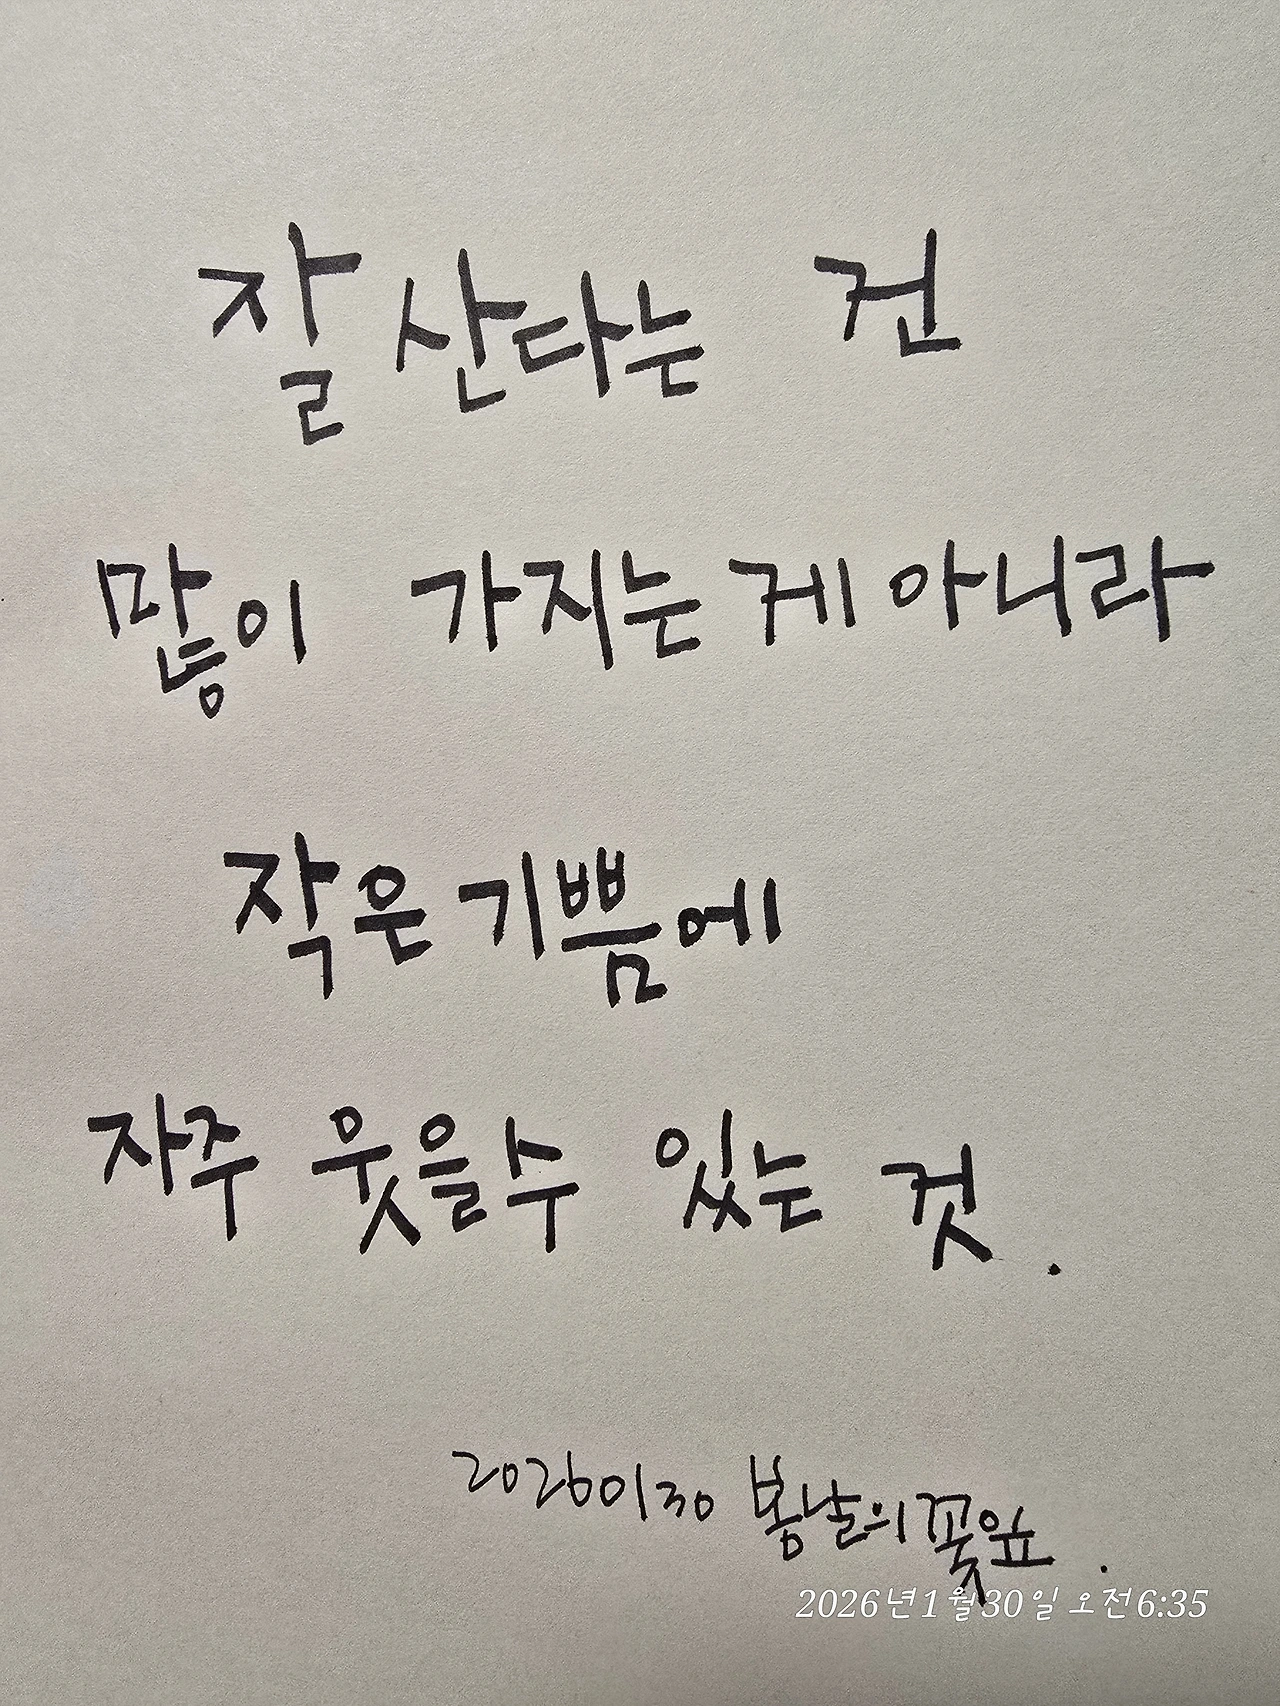 잘 산다는 건
많이 가지는 게 아니라
작은 기쁨에
자주 웃을수 있는 것.
20260130 봄날의꽃잎.
2026년 1월 30일 오전 6:35